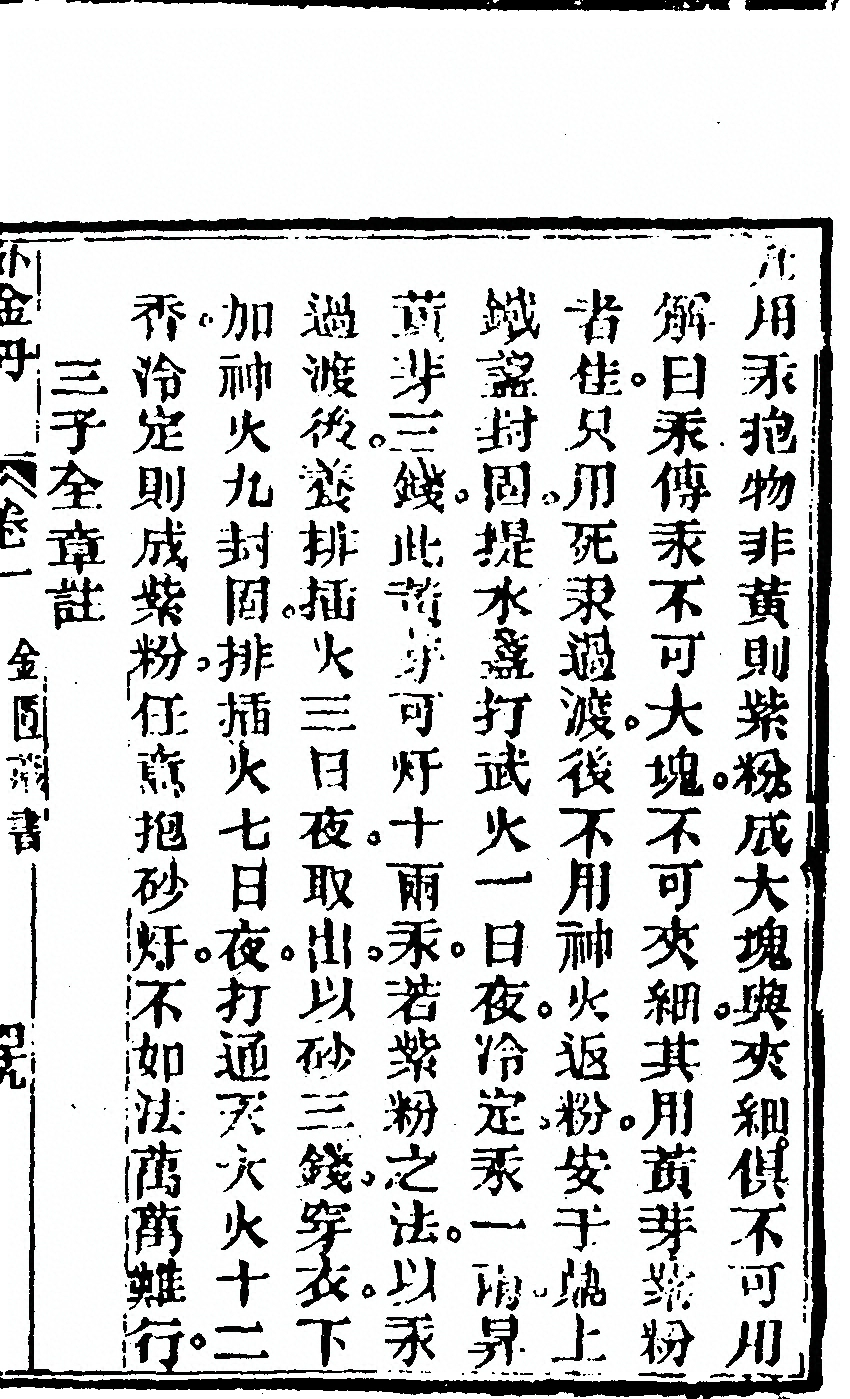 用汞抱物非黃則紫粉成大塊與夾細俱不可用
解曰汞傳汞不可大塊不可夾細其用黃芽紫粉
者佳只用死汞過渡後不用神火返粉安于鼎上
鐵盞封固提水盞打武火一日夜冷定汞一兩昇
黃芽三錢此黃芽可炓十兩汞若紫粉之法以汞
過渡後養排插火三日夜取出以砂三錢穿衣下
加神火九封固排插火七日夜打通天火火十二
香冷定則成紫粉任意抱砂炓不如法萬萬難行
三子全章註
外金丹 卷一 金匱藏書